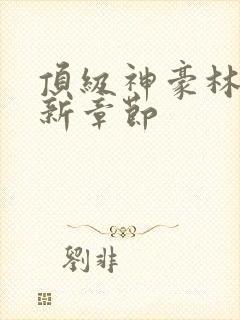 頂級神豪林
新章節
劉非